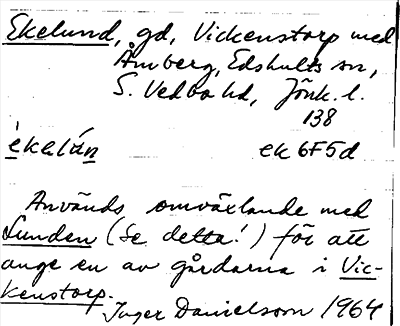 Ekelund, gd, Vickenstorp med
Åmberg, Edshults sn,
S. Vedbo hd, Jönk. l.
138
èkalán ek 6F5d
Används omväxlande med
Lunden (Se detta!) för att
ange en av gårdarna i Vic-
kenstorp.
Inger Danielsson 1964